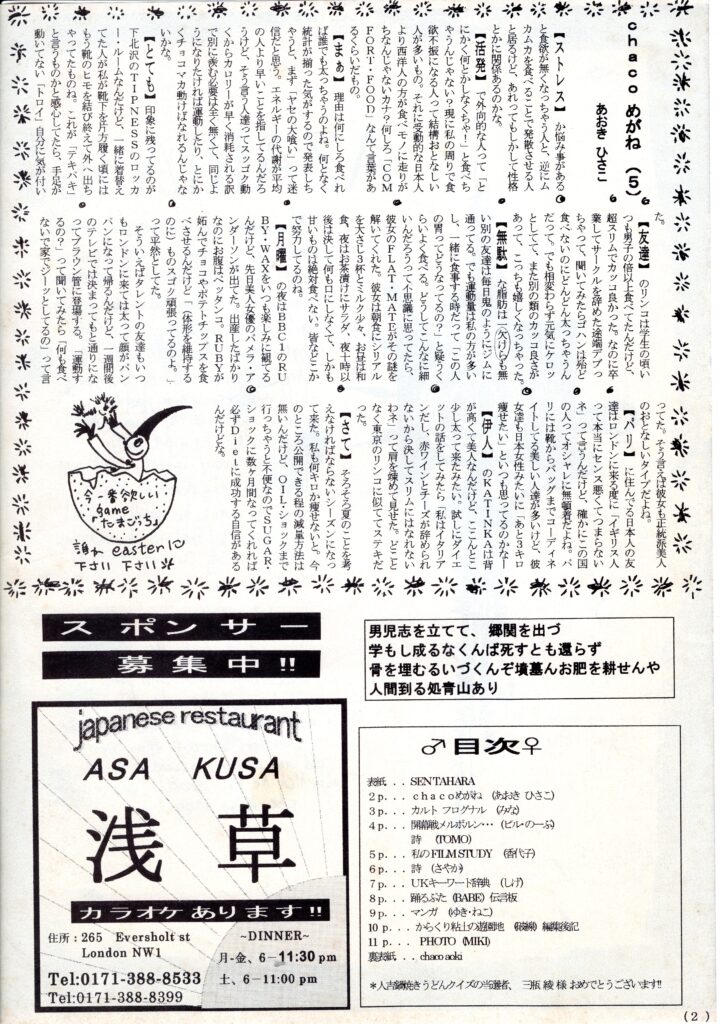 chaco めがね (5)
あおき ひさこ
【ストレス】か悩み事がある
と食欲が無くなっちゃう人と逆にム
カムカを食べることで発散させる人
と居るけど、あれってもしかして性格
とかに関係あるのかな。
【活発】で外向的な人って「と
にかく何とかしなくちゃー」と食べち
ゃうんじゃない?現に私の周りで食
欲不振になる人って結構おとなしい
人が多いもの。それに受動的な日本人
より西洋人の方が食、モノに走りが
ちなんじゃないカナ?何しろ「COM
FORT・FOOD」なんて言葉があ
るくらいだもの。
【まぁ】理由は何にしろ食べれ
ば誰でも太っちゃうのよね。何となく
統計が揃った気がするので発表しち
ゃうと、まず「ヤセの大喰い」って迷
信だと思う。エネルギーの代謝が平均
の人より早いことを指してるんだろ
うけど、そう言う人達ってスッゴク動
くからカロリーが早く消耗される訳
で別に羨む必要は全く無くて、同じよ
うになりたければ運動したり、とにか
くチョコマカ動けばなれるんじゃな
いかな。
【とても】印象に残ってるのが
下北沢のTIPNESSのロッカ
ー・ルームなんだけど、一緒に着替え
てた人が私が靴下を片方履く頃には
もう靴のヒモを結び終えて外へ出ち
ゃってたものね。これが「テキパキ」
と言うものかと感心してたら、手足が
動いてない「トロイ」自分に気が付い
た。
【友達】のリンコは学生の頃い
つも男子の倍以上食べてたんだけど、
超スリムでカッコ良かった。なのに卒
業してサークルを辞めた途端デブっ
ちゃって、聞いてみたらゴハンは殆ど
食べないのにどんどん太っちゃうん
だって。でも相変わらず元気にケロッ
としてて、また別の類のカッコ良さが
あって、こっちも嬉しくなっちゃった。
【無駄】な脂肪は一欠けらも無
い別の友達は毎日鬼のようにジムに
通ってる。でも運動量は私の方が多い
し、一緒に食事する時だって「この人
の胃ってどうなってるの?」と疑うく
らいよく食べる。どうしてこんなに細
いんだろうって不思議に思ってたら、
彼女のFLAT・MATEがその謎を
解いてくれた。彼女は朝食にシリアル
を大さじ3杯とミルク少々、お昼は和
食、夜はお茶漬けにサラダ、夜十時以
後は決して何も口にしなくて、しかも
甘いものは絶対食べない。皆などこか
で努力してるのね。
【月曜】の夜はBBC1のRU
BY・WAXをいつも楽しみに観てる
んだけど、先日美人女優のパメラ・ア
ンダーソンが出てた。出産したばかり
なのにお腹はペッタンコ。RUBYが
妬んでチョコやポテトチップスを食
べさせるんだけど「(体形を維持する
のに)ものスゴク頑張ってるのよ。」
って平然としてた。
そういえばタレントの友達もいつ
もロンドンに来ては太って顔がパン
パンになって帰るんだけど、一週間後
のテレビでは決まってもと通りにな
ってブラウン管に登場する。「運動す
るの?」って聞いてみたら「何も食べ
ないで家でジーッとしてるの」って言
ってた。そう言えば彼女も正統派美人
のおとなしいタイプだよね。
【パリ】に住んでる日本人の友
達はロンドンに来る度に「イギリス人
って本当にセンス悪くてつまらない
ネ」って言うんだけど、確かにこの国
の人ってオシャレに無頓着だよね。パ
リには靴からバッグまでコーディネ
イトしてる美しい人達が多いけど、彼
女達も日本女性みたいに「あと3キロ
痩せたい」といつも思ってるのかなー。
【伊人】のKATINKAは背
が高くて美人なんだけど、ここんとこ
少し太って来たみたい。試しにダイエ
ットの話をしてみたら「私はイタリア
ンだし、赤ワインとチーズが辞められ
ないから決してスリムにはなれない
わネ」って肩を竦めて見せた。どこと
なく東京のリンコに似ててステキだ
った。
【さて】そろそろ夏のことを考
えなければならないシーズンになっ
て来た。私も何キロか痩せないと。今
のところ公開できる程の減量方法は
無いんだけど、OIL・ショックまで
行っちゃうと不便なのでSUGAR・
ショックに数ヶ月間なってくれれば
必ずDietに成功する自信がある
んだけどな。
今一番欲しい
game
「たまごっち」
誰か easterに
下さい! 下さい
スポンサー
募集中!!
男児志を立てて、郷関を出づ
学もし成るなくんば死すとも還らず
骨を埋むるいづくんぞ墳墓んお肥を耕せんや
人間到る処青山あり
japanese restaurant
ASA KUSA
浅草
カラオケあります!!
住所:265 Eversholt st
London NW1
Tel:0171-388-8533
Tel:0171-388-8399
~DINNER~
月-金、6-11:30 pm
土、6-11:00 pm
♂目次♀
表紙...SENTAHARA
2p...chacoめがね (あおき ひさこ)
3p...カルト フログナル (みな)
4p...開幕戦メルボルン… (ビル・のーぶ)
詩 (TOMO)
5p...私のFILM STUDY (香代子)
6p...詩 (さやか)
7p...UKキーワード辞典 (しげ)
8p...踊るぶた (BABE) 伝言板
9p...マンガ (ゆき・ねこ)
10p...からくり粘土の遊園地 編集後記
11p...PHOTO (MIKI)
裏表紙...chaco aoki
*人吉鍋焼きうどんクイズの当選者、三瓶 綾 様 おめでとうございます!!
(2)